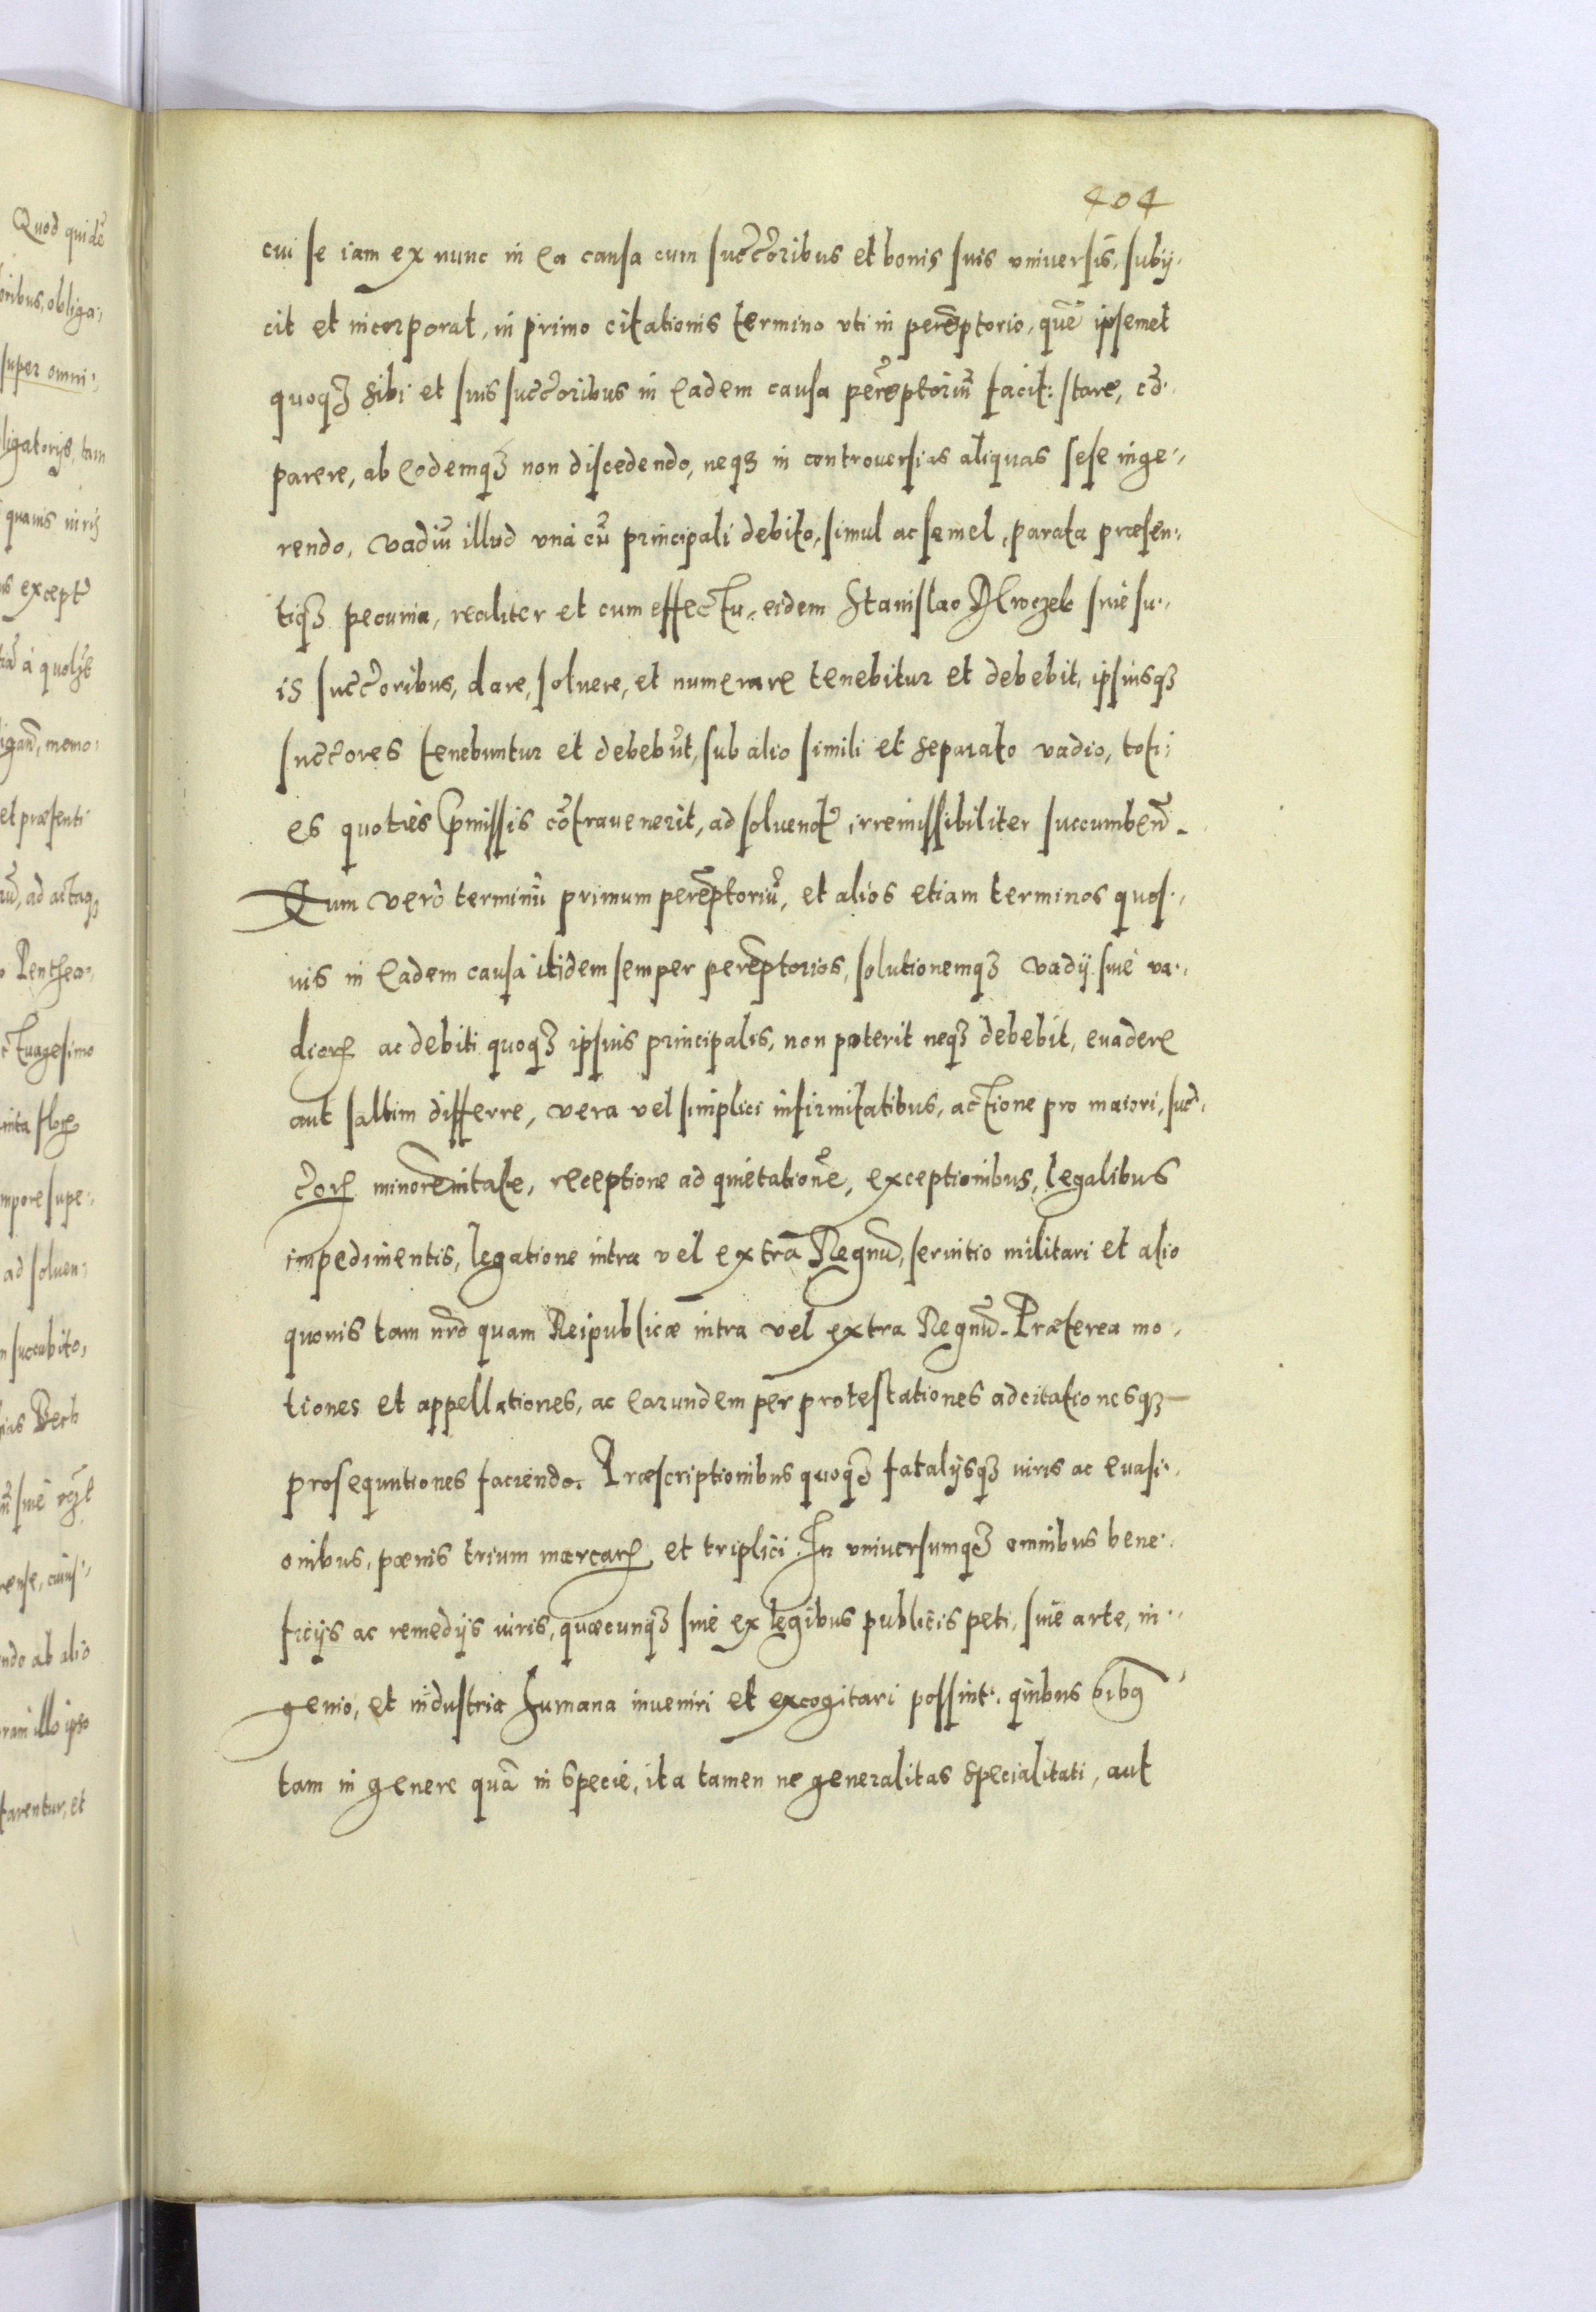 404
cui se iam ex nunc in ea causa cum succ̃oribus et bonis suis vniuersis, subij-
cit et incorporat, in primo citationis termino vti in perẽptorio, quẽ ipsemet
quoq₃ sibi et suis succ̃oribus in eadem causa perẽptoriũ facit: stare, cõ-
parere, ab eodemq₃ non discedendo, neq₃ in controuersias aliquas sese inge-
rendo, vadiũ illud vnà cũ principali debito, simul ac semel, parata præsen-
tiq₃ pecunia, realiter et cum effectu, eidem Stanislao siue su-
is succ̃oribus, dare, soluere, et numerare tenebitur et debebit, ipsiusq₃
succ̃ores tenebuntur et debebũt, sub alio simili et separato vadio, toti-
es quoties p̃missis cõtrauenerit, ad soluend̃ irremissibiliter succumbeñ.
Eum verò terminũ primum perẽptoriũ, et alios etiam terminos quos-
uis in eadem causa itidem semper perẽptorios, solutionemq₃ vadij siue va-
diorꝝ ac debiti quoq₃ ipsius principalis, non poterit neq₃ debebit, euadere
aut saltim differre, vera vel simplici infirmitatibus, actione pro maiori, suc-
c̃orꝝ minorẽnitate, receptione ad quietationẽ, exceptionibus, legalibus
impedimentis, legatione intra vel extrà Regnũ, seruitio militari et alio
quouis tam nr̃o quam Reipublicæ intra vel extra Regnũ. Præterea mo-
tiones et appellationes, ac earundem per protestationes adcitationesq₃
prosequutiones faciendo. Præscriptionibus quoq₃ fatalijsq₃ iuris ac euasi-
onibus, pœnis trium marcarꝝ et triplici. In vniuersumq₃ omnibus bene-
ficijs ac remedijs iuris, quæcunq₃ siue ex legibus publicis peti, siue arte, in-
genio, et industria humana inueniri et excogitari possint. quibus oĩbꝰ
tam in genere quã in specie, ita tamen ne generalitas specialitati, aut